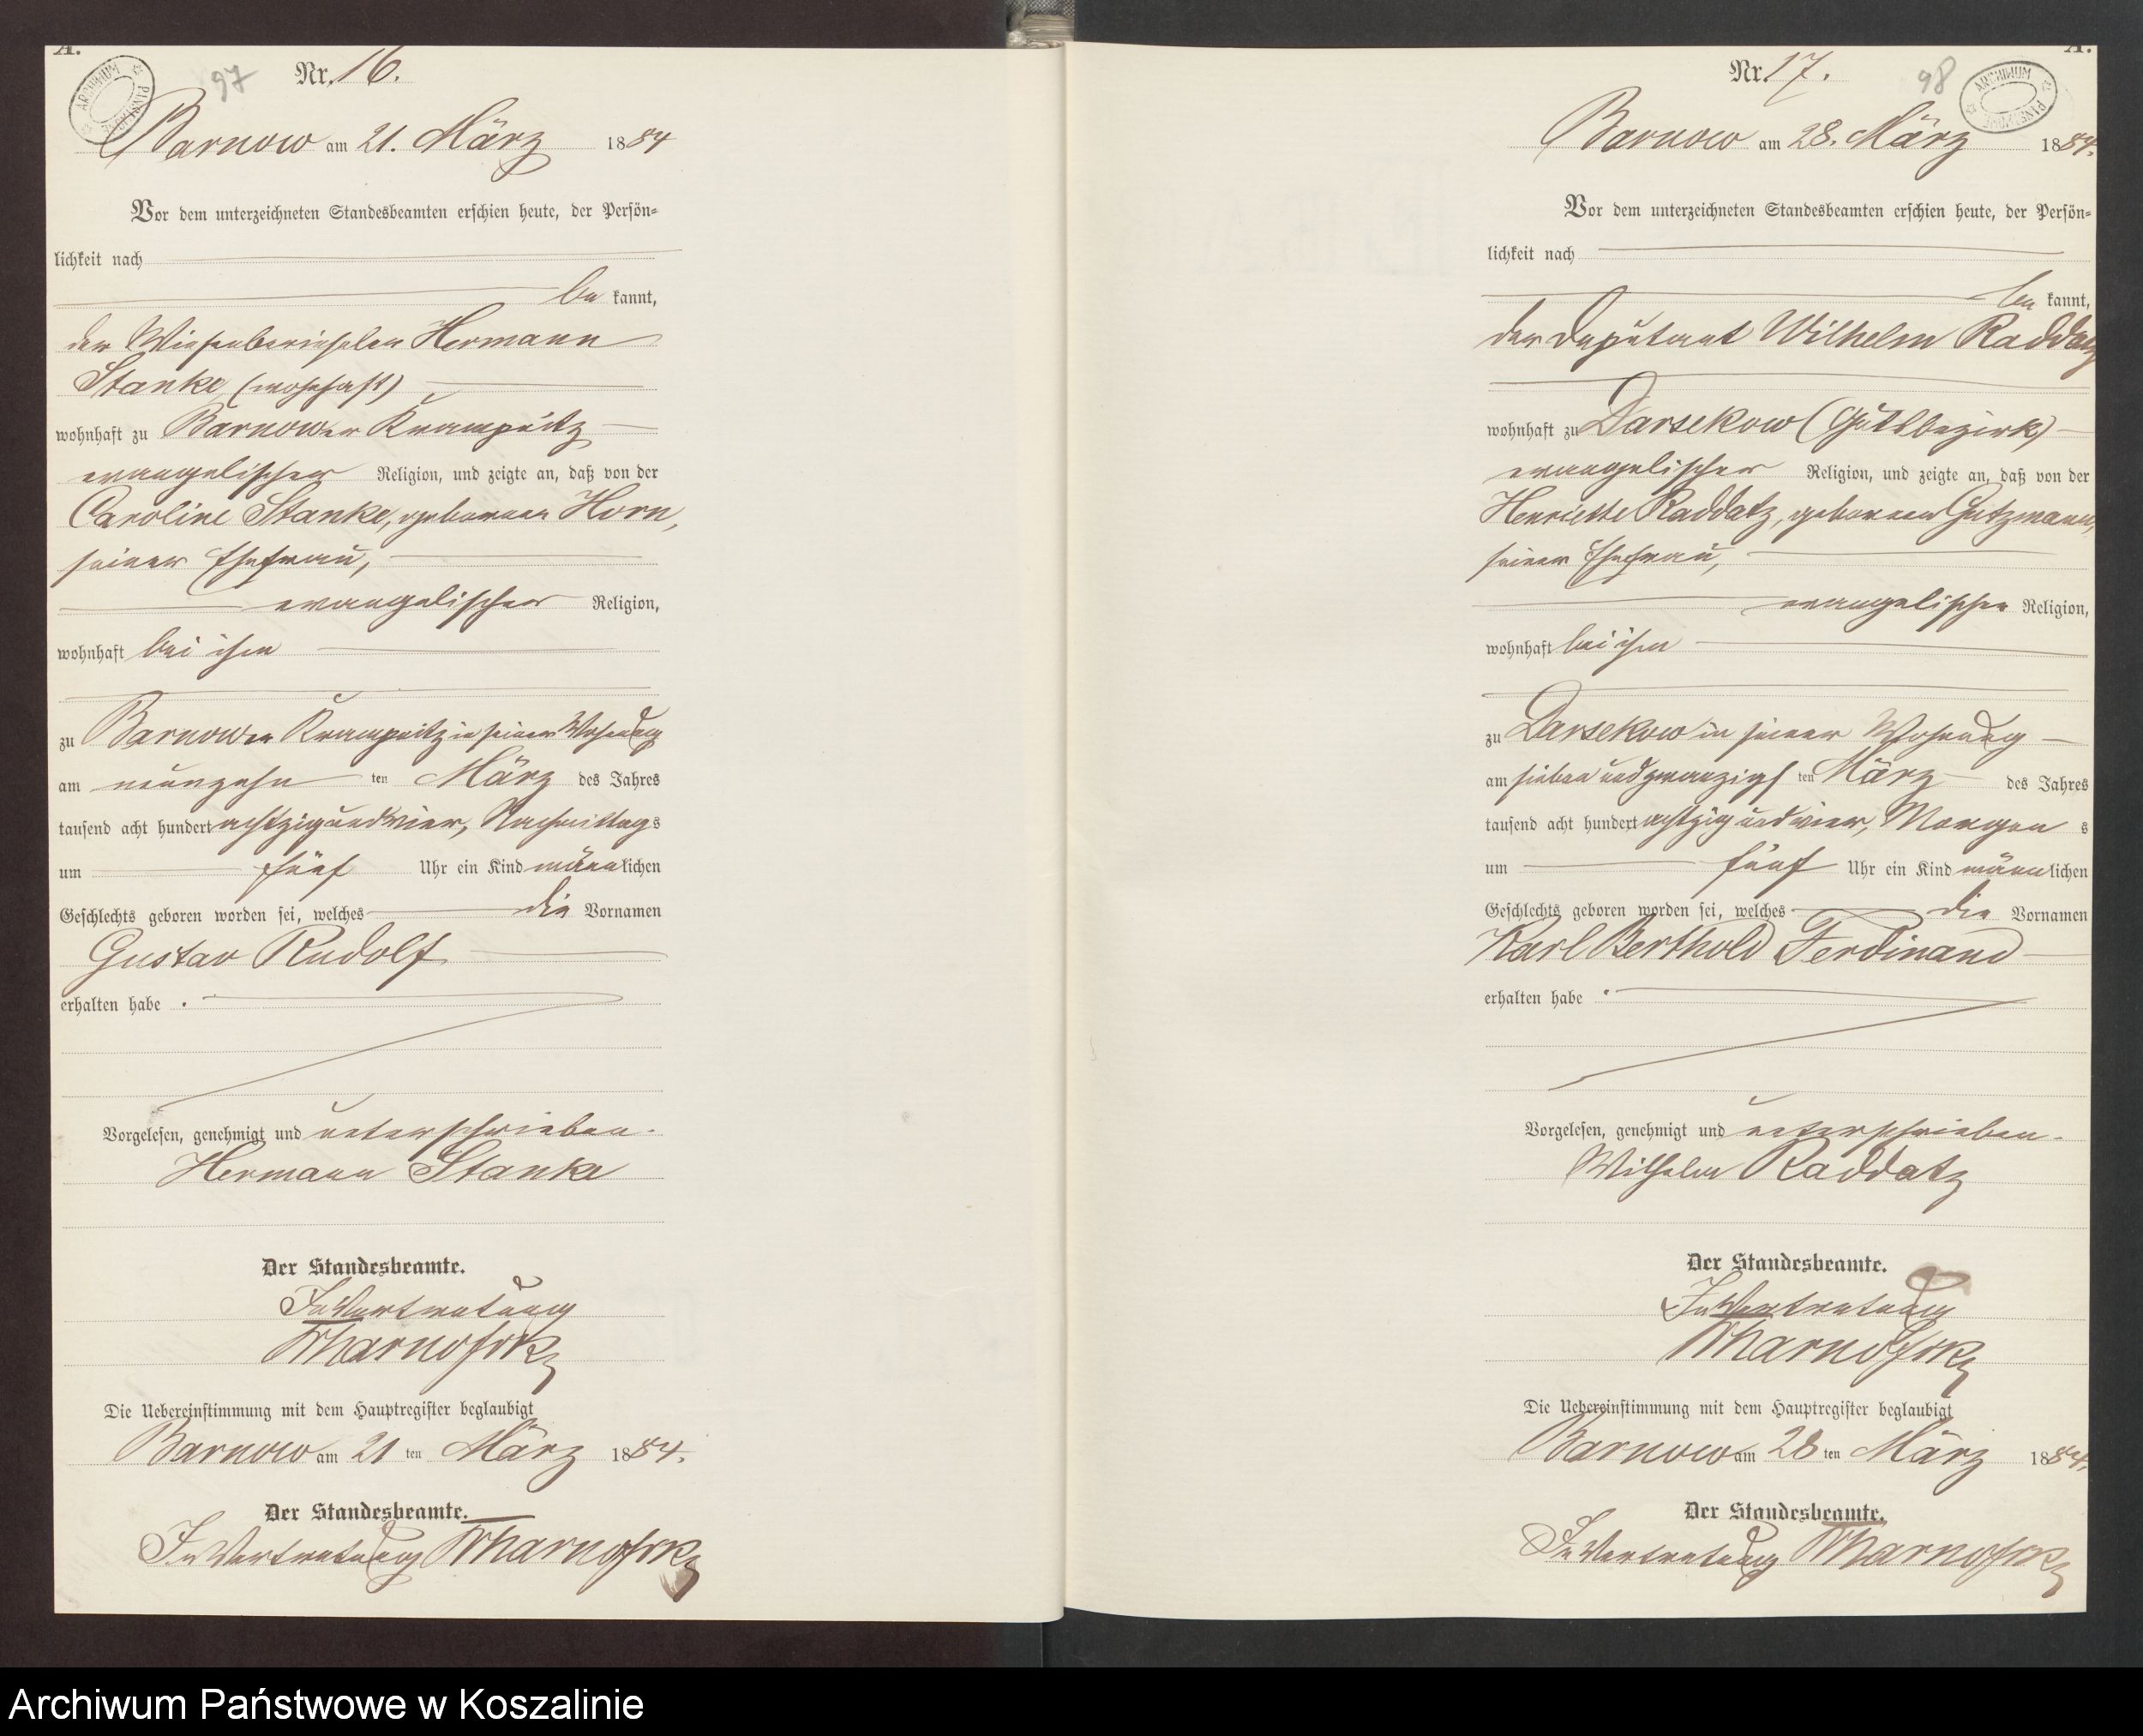 A.
97
Nr. 16.
Barnow am 21. März 1884
Vor dem unterzeichneten Standesbeamten erschien heute, der Persön-
lichkeit nach
be kannt,
der Wiesenberieseler Hermann
Stanke, (wohnhaft)
wohnhaft zu Barnower Krampnitz
evangelischer Religion, und zeigte an, daß von der
Caroline Stanke, geborenen Horn,
seiner Ehefrau,
evangelischer Religion,
wohnhaft bei ihm
zu Barnower Krampnitz in seiner Wohnung
am neunzehn ten März des Jahres
tausend acht hundert achtzig und vier, Nachmittags
um fünf Uhr ein Kind männlichen
Geschlechts geboren worden sei, welches die Vornamen
Gustav Rudolf
erhalten habe.
Vorgelesen, genehmigt und unterschrieben.
Hermann Stanke
Der Standesbeamte.
In Vertretung
Die Uebereinstimmung mit dem Hauptregister beglaubigt
Barnow am 21 ten März 1884.
Der Standesbeamte.
In Vertretung
A.
98
Nr. 17.
Barnow am 28. März 1884.
Vor dem unterzeichneten Standesbeamten erschien heute, der Persön-
lichkeit nach
be kannt,
der Deputant Wilhelm Raddatz
wohnhaft zu Darsekow (Gutsbezirk)
evangelischer Religion, und zeigte an, daß von der
Henriette Raddatz, geborenen Gutzmann,
seiner Ehefrau,
evangelischer Religion,
wohnhaft bei ihm
zu Darsekow in seiner Wohnung
am sieben und zwanzigs ten März des Jahres
tausend acht hundert achtzig und vier, Morgens
um fünf Uhr ein Kind männlichen
Geschlechts geboren worden sei, welches die Vornamen
Karl Berthold Ferdinand
erhalten habe.
Vorgelesen, genehmigt und unterschrieben.
Wilhelm Raddatz
Der Standesbeamte.
In Vertretung
Die Uebereinstimmung mit dem Hauptregister beglaubigt
Barnow am 28 ten März 1884.
Der Standesbeamte.
In Vertretung
Archiwum Państwowe w Koszalinie